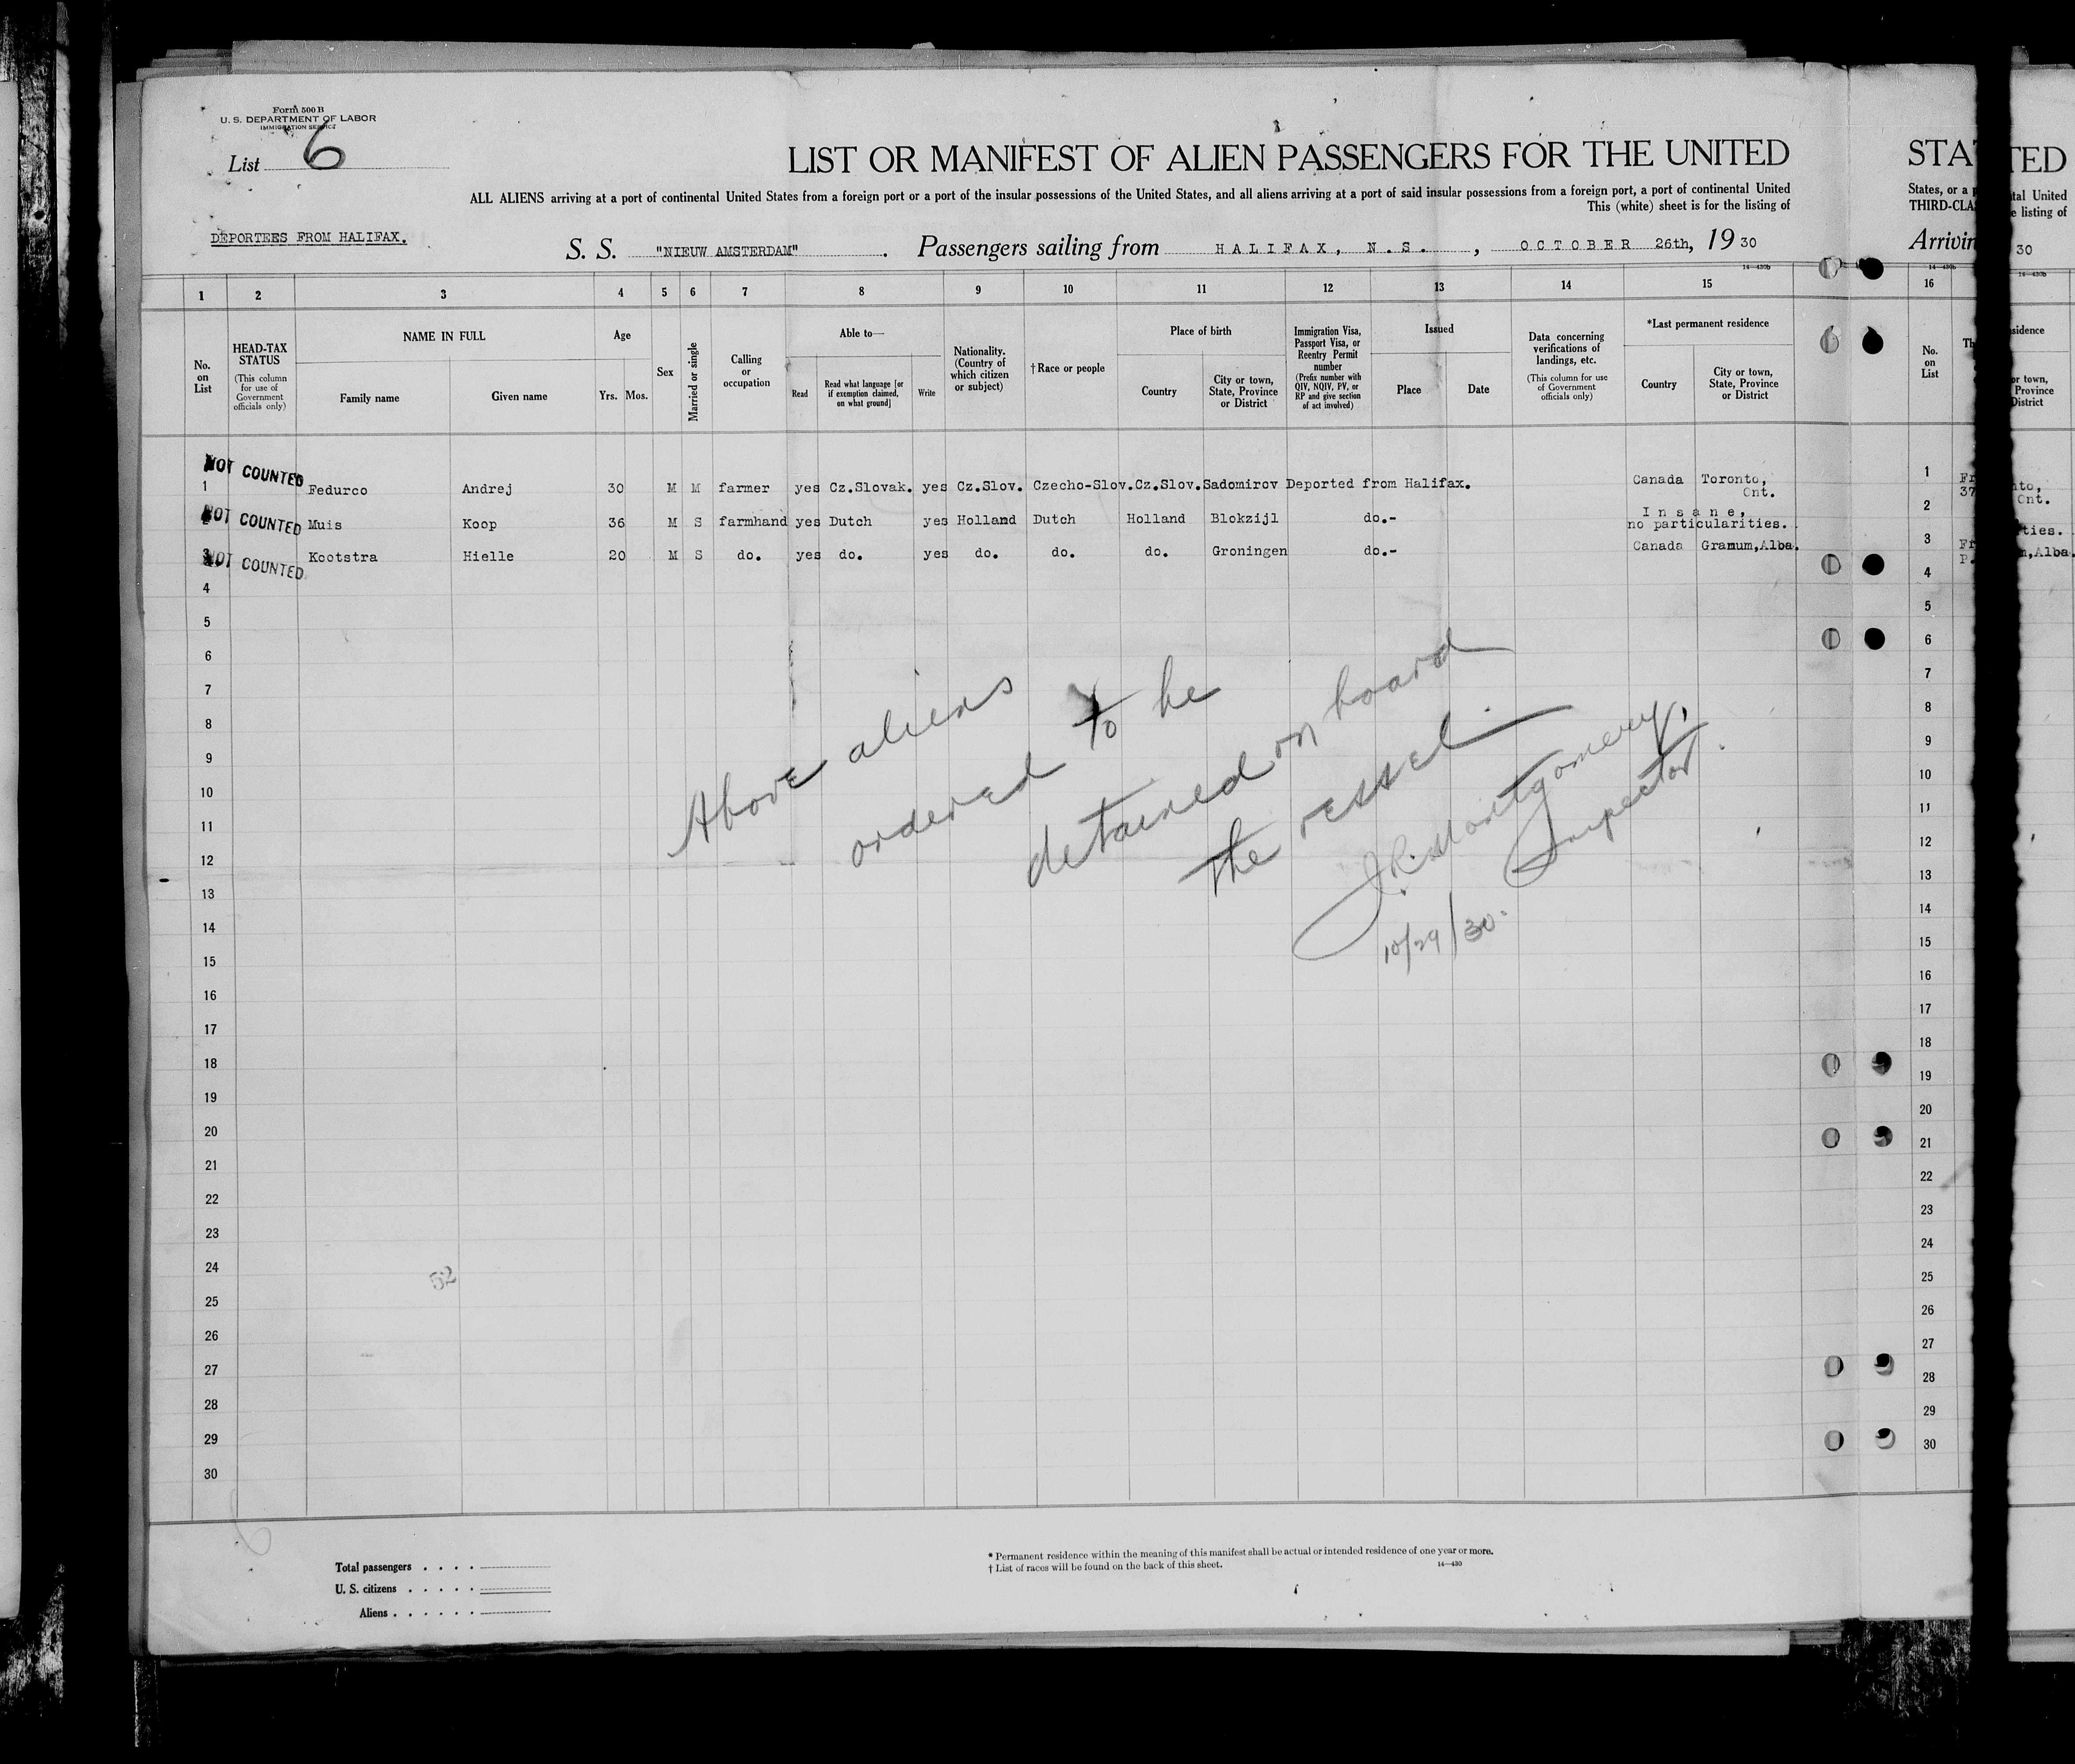 Form 500 B
U. S. DEPARTMENT OF LABOR
IMMIGRATION SERVICE
List 6
LIST OR MANIFEST OF ALIEN PASSENGERS FOR THE UNITED
ALL ALIENS arriving at a port of continental United States from a foreign port or a port of the insular possessions of the United States, and all aliens arriving at a port of said insular possessions from a foreign port, a port of continental United
This (white) sheet is for the listing of
DEPORTEES FROM HALIFAX.
S. S. "NIEUW AMSTERDAM". Passengers sailing from HALIFAX, N.S., OCTOBER 26th, 1930
14—430b
1 2 3 4 5 6 7 8 9 10 11 12 13 14 15
No. on List
HEAD-TAX STATUS
(This column for use of Government officials only)
NAME IN FULL
Family name
Given name
Age
Yrs. Mos.
Sex
Married or single
Calling or occupation
Able to—
Read
Read what language [or if exemption claimed, on what ground]
Write
Nationality. (Country of which citizen or subject)
†Race or people
Place of birth
Country
City or town, State, Province or District
Immigration Visa, Passport Visa, or Reentry Permit number
(Prefix number with QIV, NQIV, PV, or RP and give section of act involved)
Issued
Place
Date
Data concerning verifications of landings, etc.
(This column for use of Government officials only)
*Last permanent residence
Country
City or town, State, Province or District
NOT COUNTED
1 Fedurco Andrej 30 M M farmer yes Cz.Slovak. yes Cz.Slov. Czecho-Slov. Cz.Slov. Sadomirov Deported from Halifax. Canada Toronto, Ont.
NOT COUNTED
2 Muis Koop 36 M S farmhand yes Dutch yes Holland Dutch Holland Blokzijl do.- Insane, no particularities.
3 Kootstra Hielle 20 M S do. yes do. yes do. do. do. Groningen do.- Canada Granum,Alba.
NOT COUNTED
4
5
6
7
8
9
10
11
12
13
14
15
16
17
18
19
20
21
22
23
24
25
26
27
28
29
30
Above aliens
ordered to be
detained on board
the vessel.
J.R. Montgomery,
Inspector.
10/29/30.
52
6
Total passengers
U. S. citizens
Aliens
* Permanent residence within the meaning of this manifest shall be actual or intended residence of one year or more.
† List of races will be found on the back of this sheet.
14—430
STA
States, or a
THIRD-CLA
Arrivin
14—430b
16
No. on List
Th
1
2
3
4
5
6
7
8
9
10
11
12
13
14
15
16
17
18
19
20
21
22
23
24
25
26
27
28
29
30
37
TED
tal United
listing of
30
14—430b
sidence
or town,
Province
District
nto,
Ont.
ties.
,Alba.